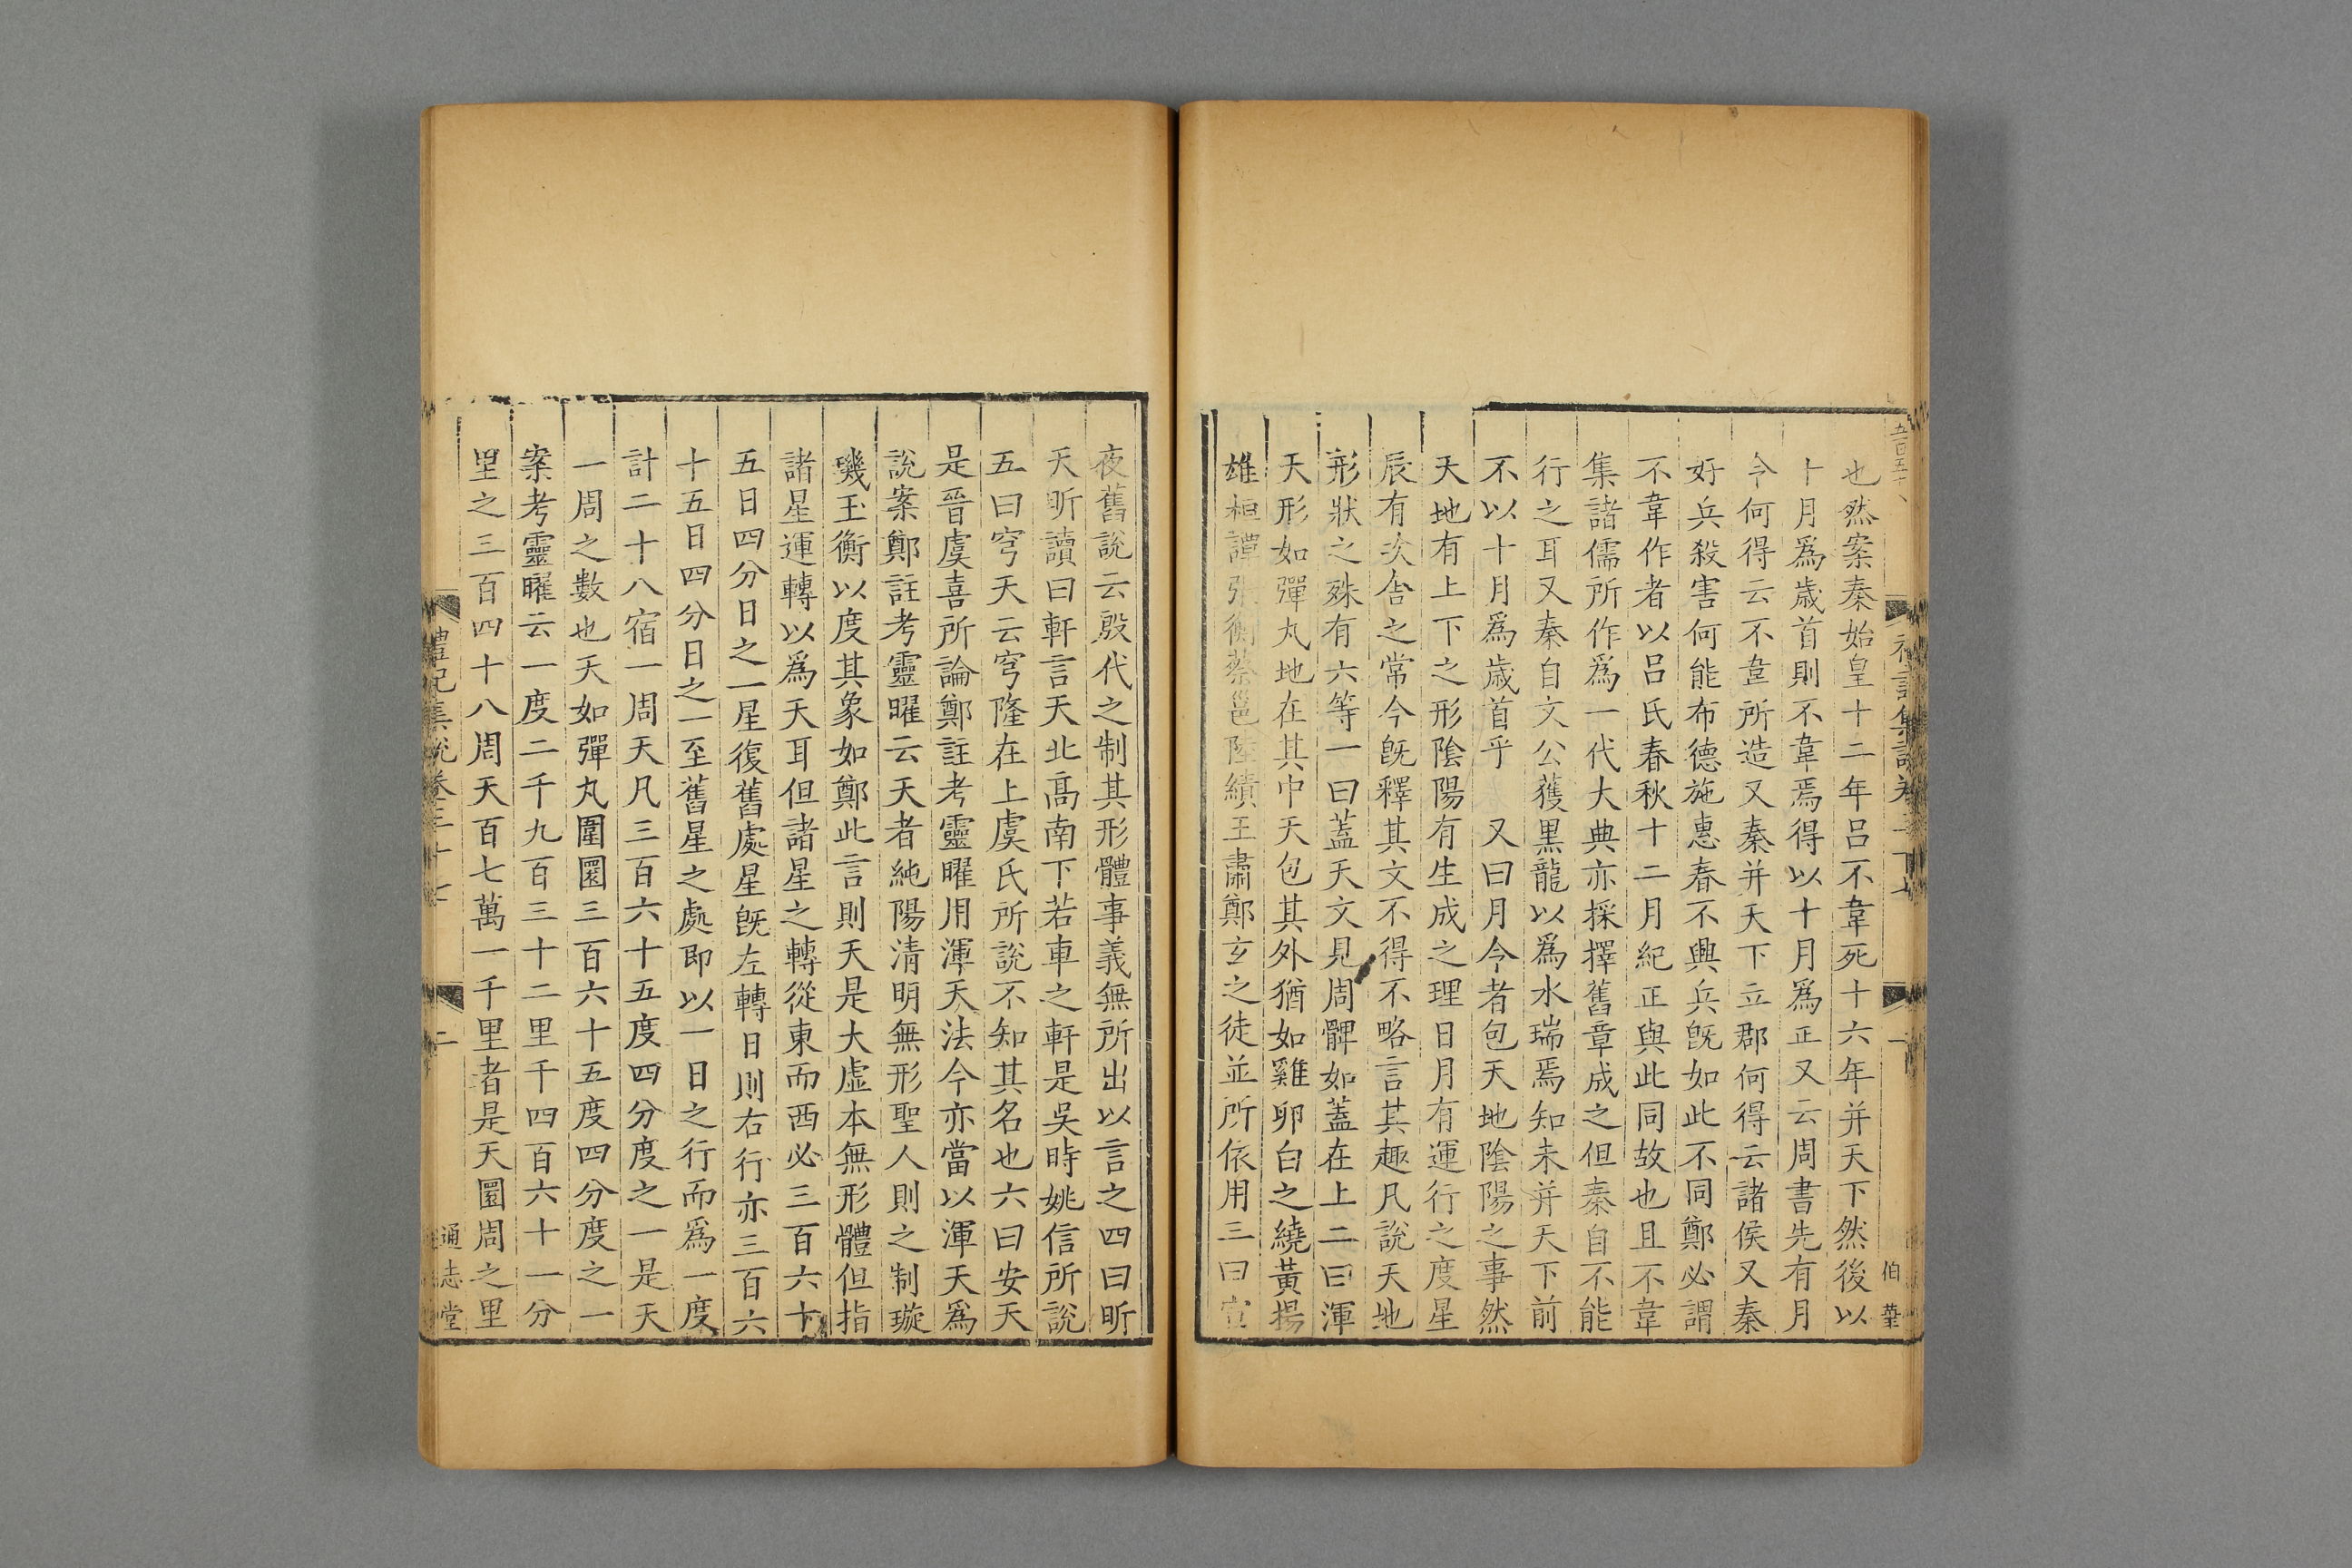 也然案秦始皇十二年吕不韋死十六年并天下然後以
十月爲歲首則不韋焉得以十月爲正又云周書先有月
令何得云不韋所造又秦并天下立郡何得云諸侯又秦
好兵殺害何能布德施惠春不興兵旣如此不同鄭必謂
不韋作者以吕氏春秋十二月紀正與此同故也且不韋
集諸儒所作爲一代大典亦採擇舊章成之但秦自不能
行之耳又秦自文公獲黑龍以爲水瑞焉知未并天下前
不以十月爲歲首乎 又曰月令者包天地陰陽之事然
天地有上下之形陰陽有生成之理日月有運行之度星
辰有次舍之常今旣釋其文不得不略言其趣凡說天地
形狀之殊有六等一曰蓋天文見周髀如蓋在上二曰渾
天形如彈丸地在其中天包其外猶如雞卵白之繞黃揚
雄桓譚張衡蔡邕陸績王肅鄭玄之徒並所依用三曰宣
伯葦
夜舊說云殷代之制其形體事義無所出以言之四曰昕
天昕讀曰軒言天北高南下若車之軒是吳時姚信所說
五曰穹天云穹隆在上虞氏所說不知其名也六曰安天
是晉虞喜所論鄭註考靈曜用渾天法今亦當以渾天爲
說案鄭註考靈曜云天者純陽清明無形聖人則之制璇
璣玉衡以度其象如鄭此言則天是大虛本無形體但指
諸星運轉以爲天耳但諸星之轉從東而西必三百六十
五日四分日之一星復舊處星旣左轉日則右行亦三百六
十五日四分日之一至舊星之處即以一日之行而爲一度
計二十八宿一周天凡三百六十五度四分度之一是天
一周之數也天如彈丸圍圜三百六十五度四分度之一
案考靈曜云一度二千九百三十二里千四百六十一分
里之三百四十八周天百七萬一千里者是天圜周之里
禮記集說卷三十七
二
通志堂